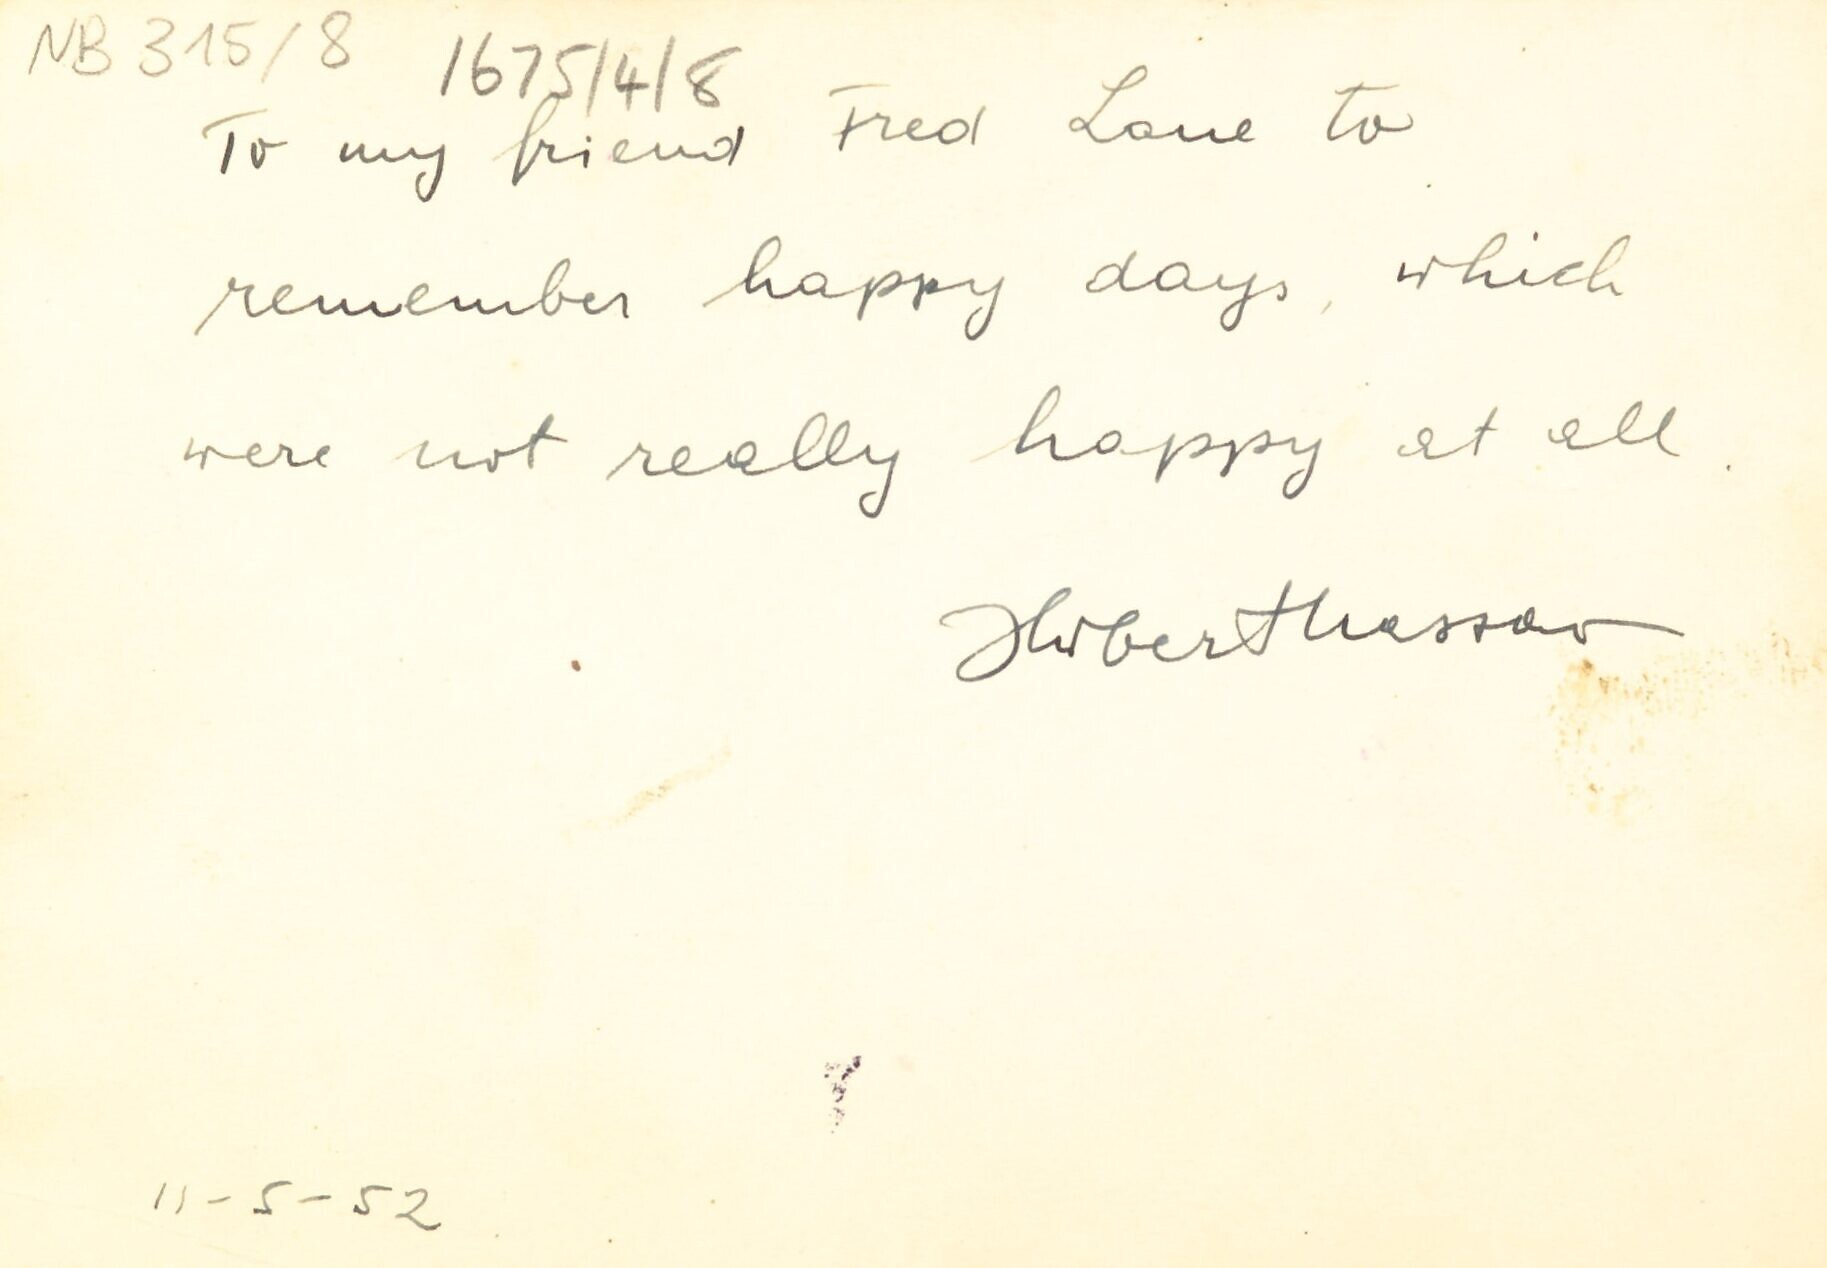 NB 315/8
1675/4/8
To my friend Fred Lane to
remember happy days, which
were not really happy at all.
11-5-52